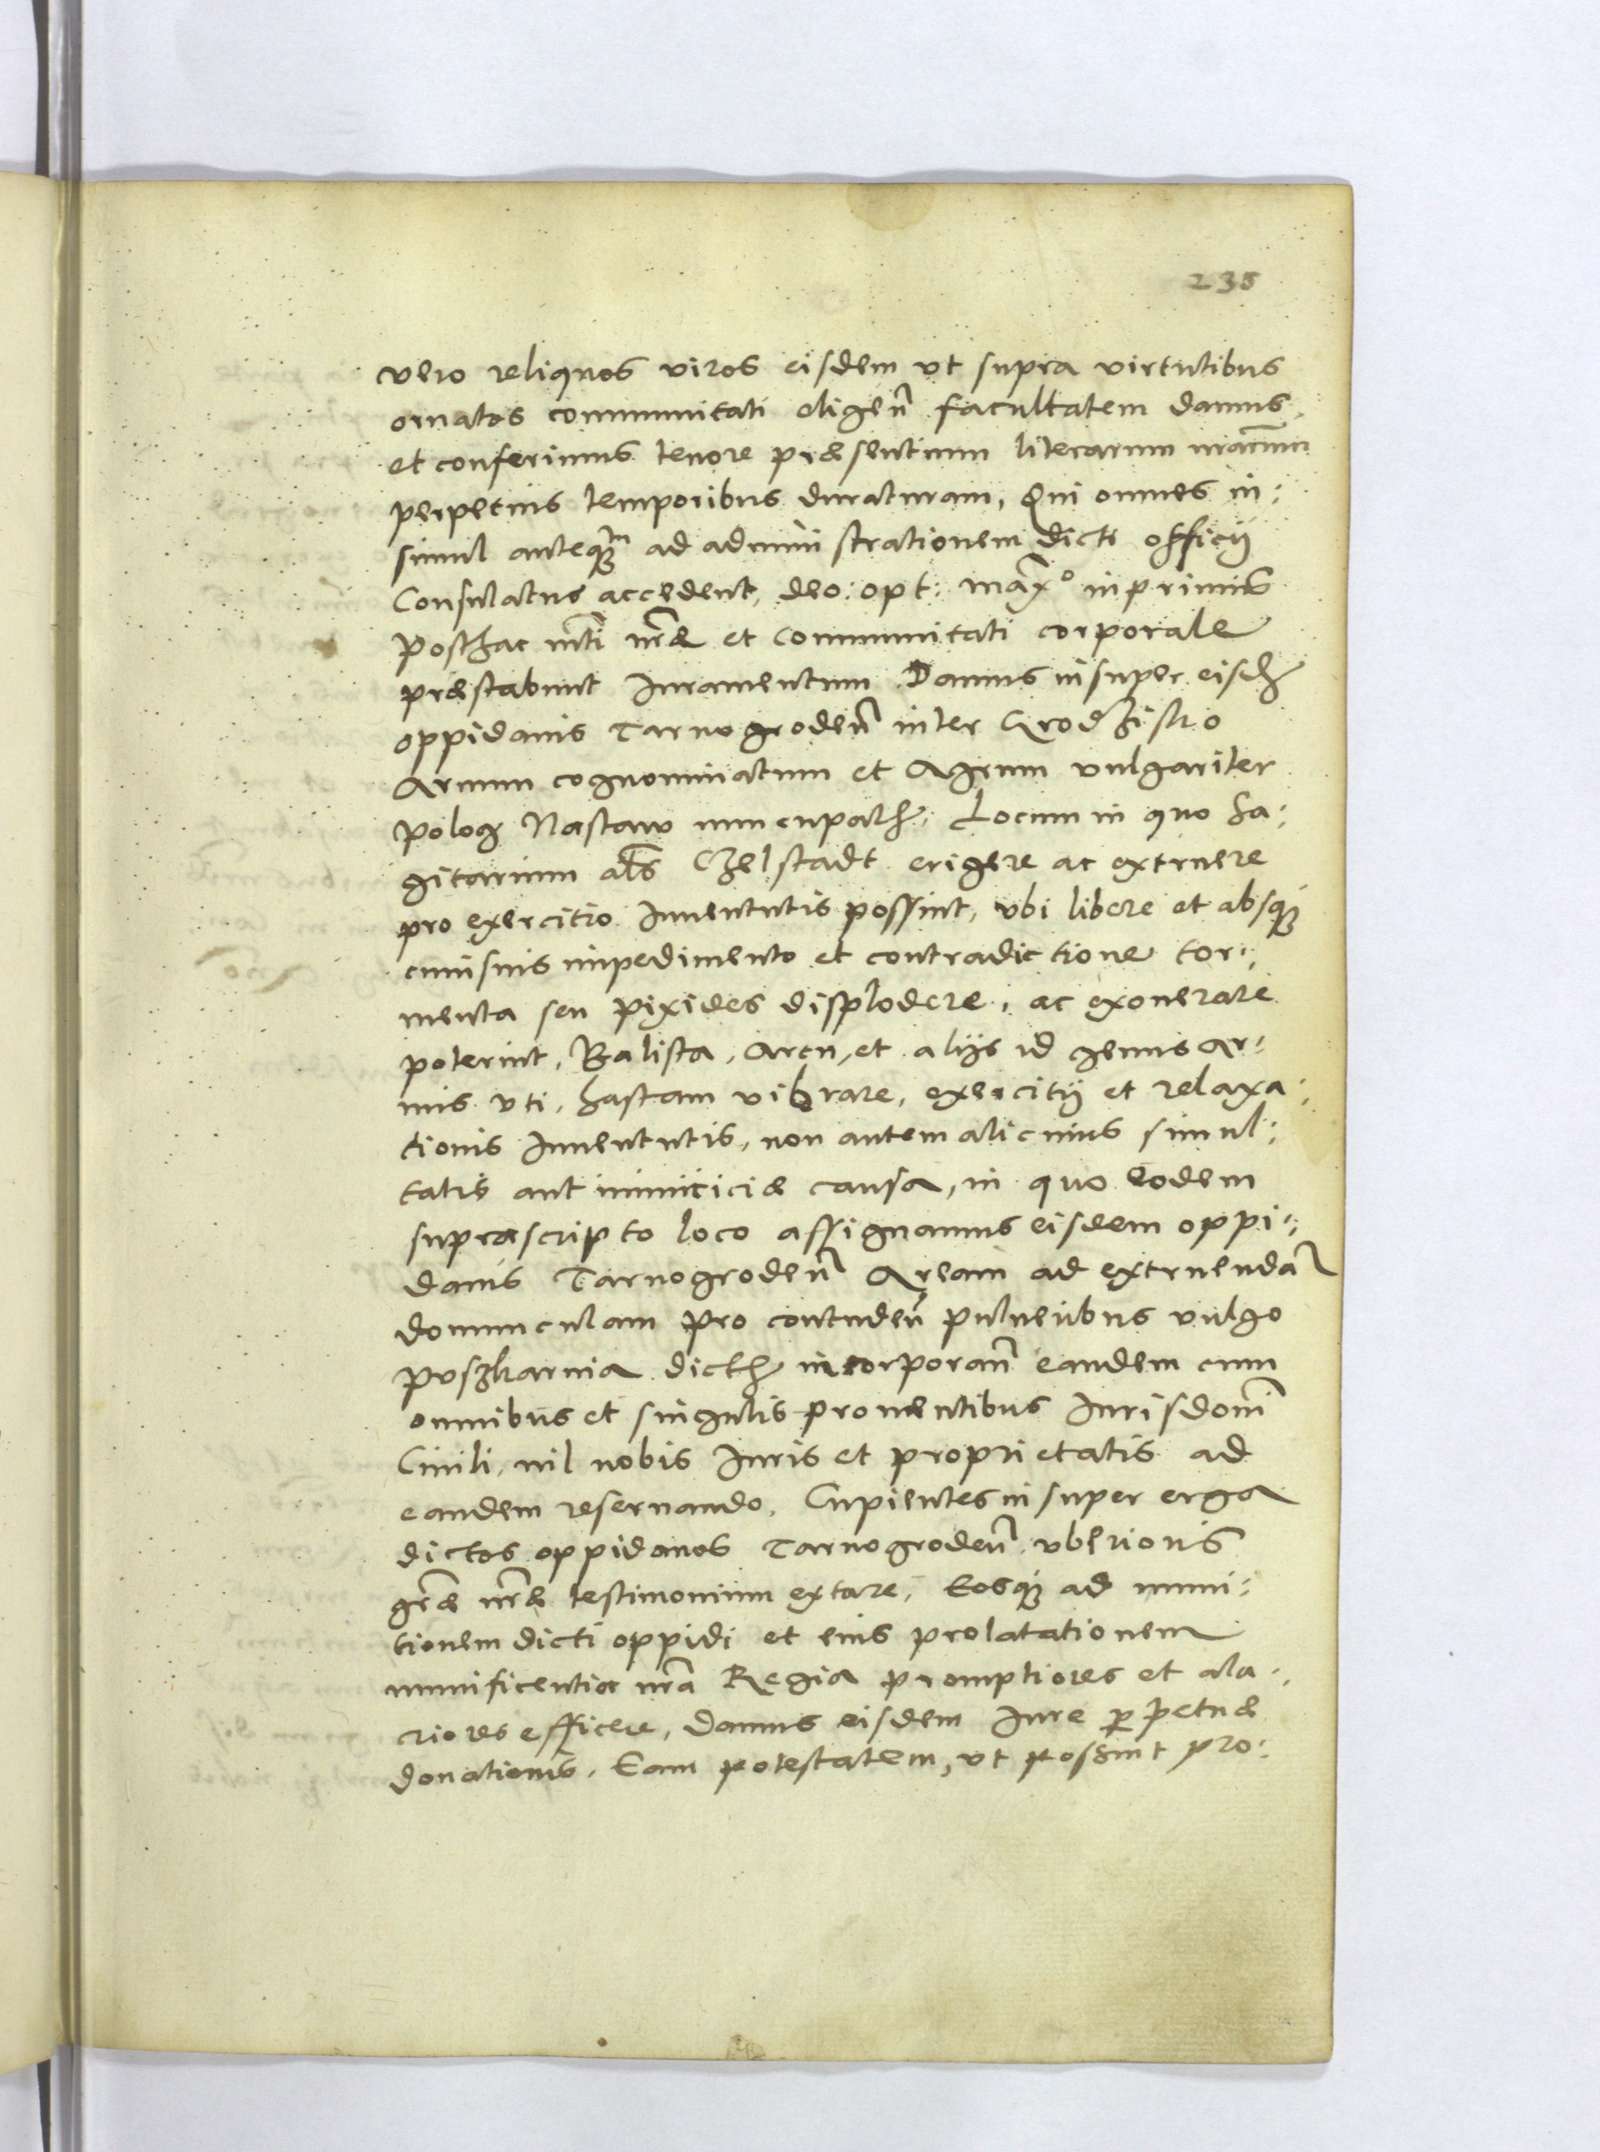 235
vero reliquos viros eisdem vt supra virtutibus
ornatos communitati eligen̄ facultatem damus,
et conferimus tenore præsentium literarum nrārum
perpetuis temporibus duraturam, Qui omnes in:
simul antequam ad administrationem dicti officij
Consulatus accedent, deo: opt: maxº inprimis
Posthac mti nræ et Communitati corporale
præstabunt Iuramentum Damus insuper eisd
oppidanis Tarnogroden̄ inter Grodzisko
Aruum cognominatum et Agrum vulgariter
Polog Nastaw nuncupat Locum in quo Sa:
gitarium als Czelstadt erigere ac extruere
pro exercitio Iuuentutis possint, vbi libere et absq
cuiusuis impedimento et contradictione tor:
menta seu pixides displodere, ac exonerare
poterint, Balista, Arcu, et alijs id genus Ar:
mis vti, hastam vibrare, exercitij et relaxa:
tionis Iuuentutis, non autem alicuius simul:
tatis aut inimiciciæ causa, in quo eodem
suprascripto loco assignamus eisdem oppi:
danis Tarnogroden̄ Aream ad extruendā
domunculam pro contuden̄ pulueribus vulgo
Puszkarnia dict incorporan̄ eandem cum
omnibus et singulis prouentibus Iurisdoni
Ciuili, nil nobis Iuris et proprietatis ad
eandem reseruando. Cupientes insuper erga
dictos oppidanos Tarnogroden̄ vberioris
græ nræ testimonium extare, Eosq ad muni:
tionem dicti oppidi et eius prolatationem
munificentia nrā Regia promptiores et ala:
criores efficere, Damus eisdem Iure perpetuæ
donationis. Eam potestatem, vt possint pro: